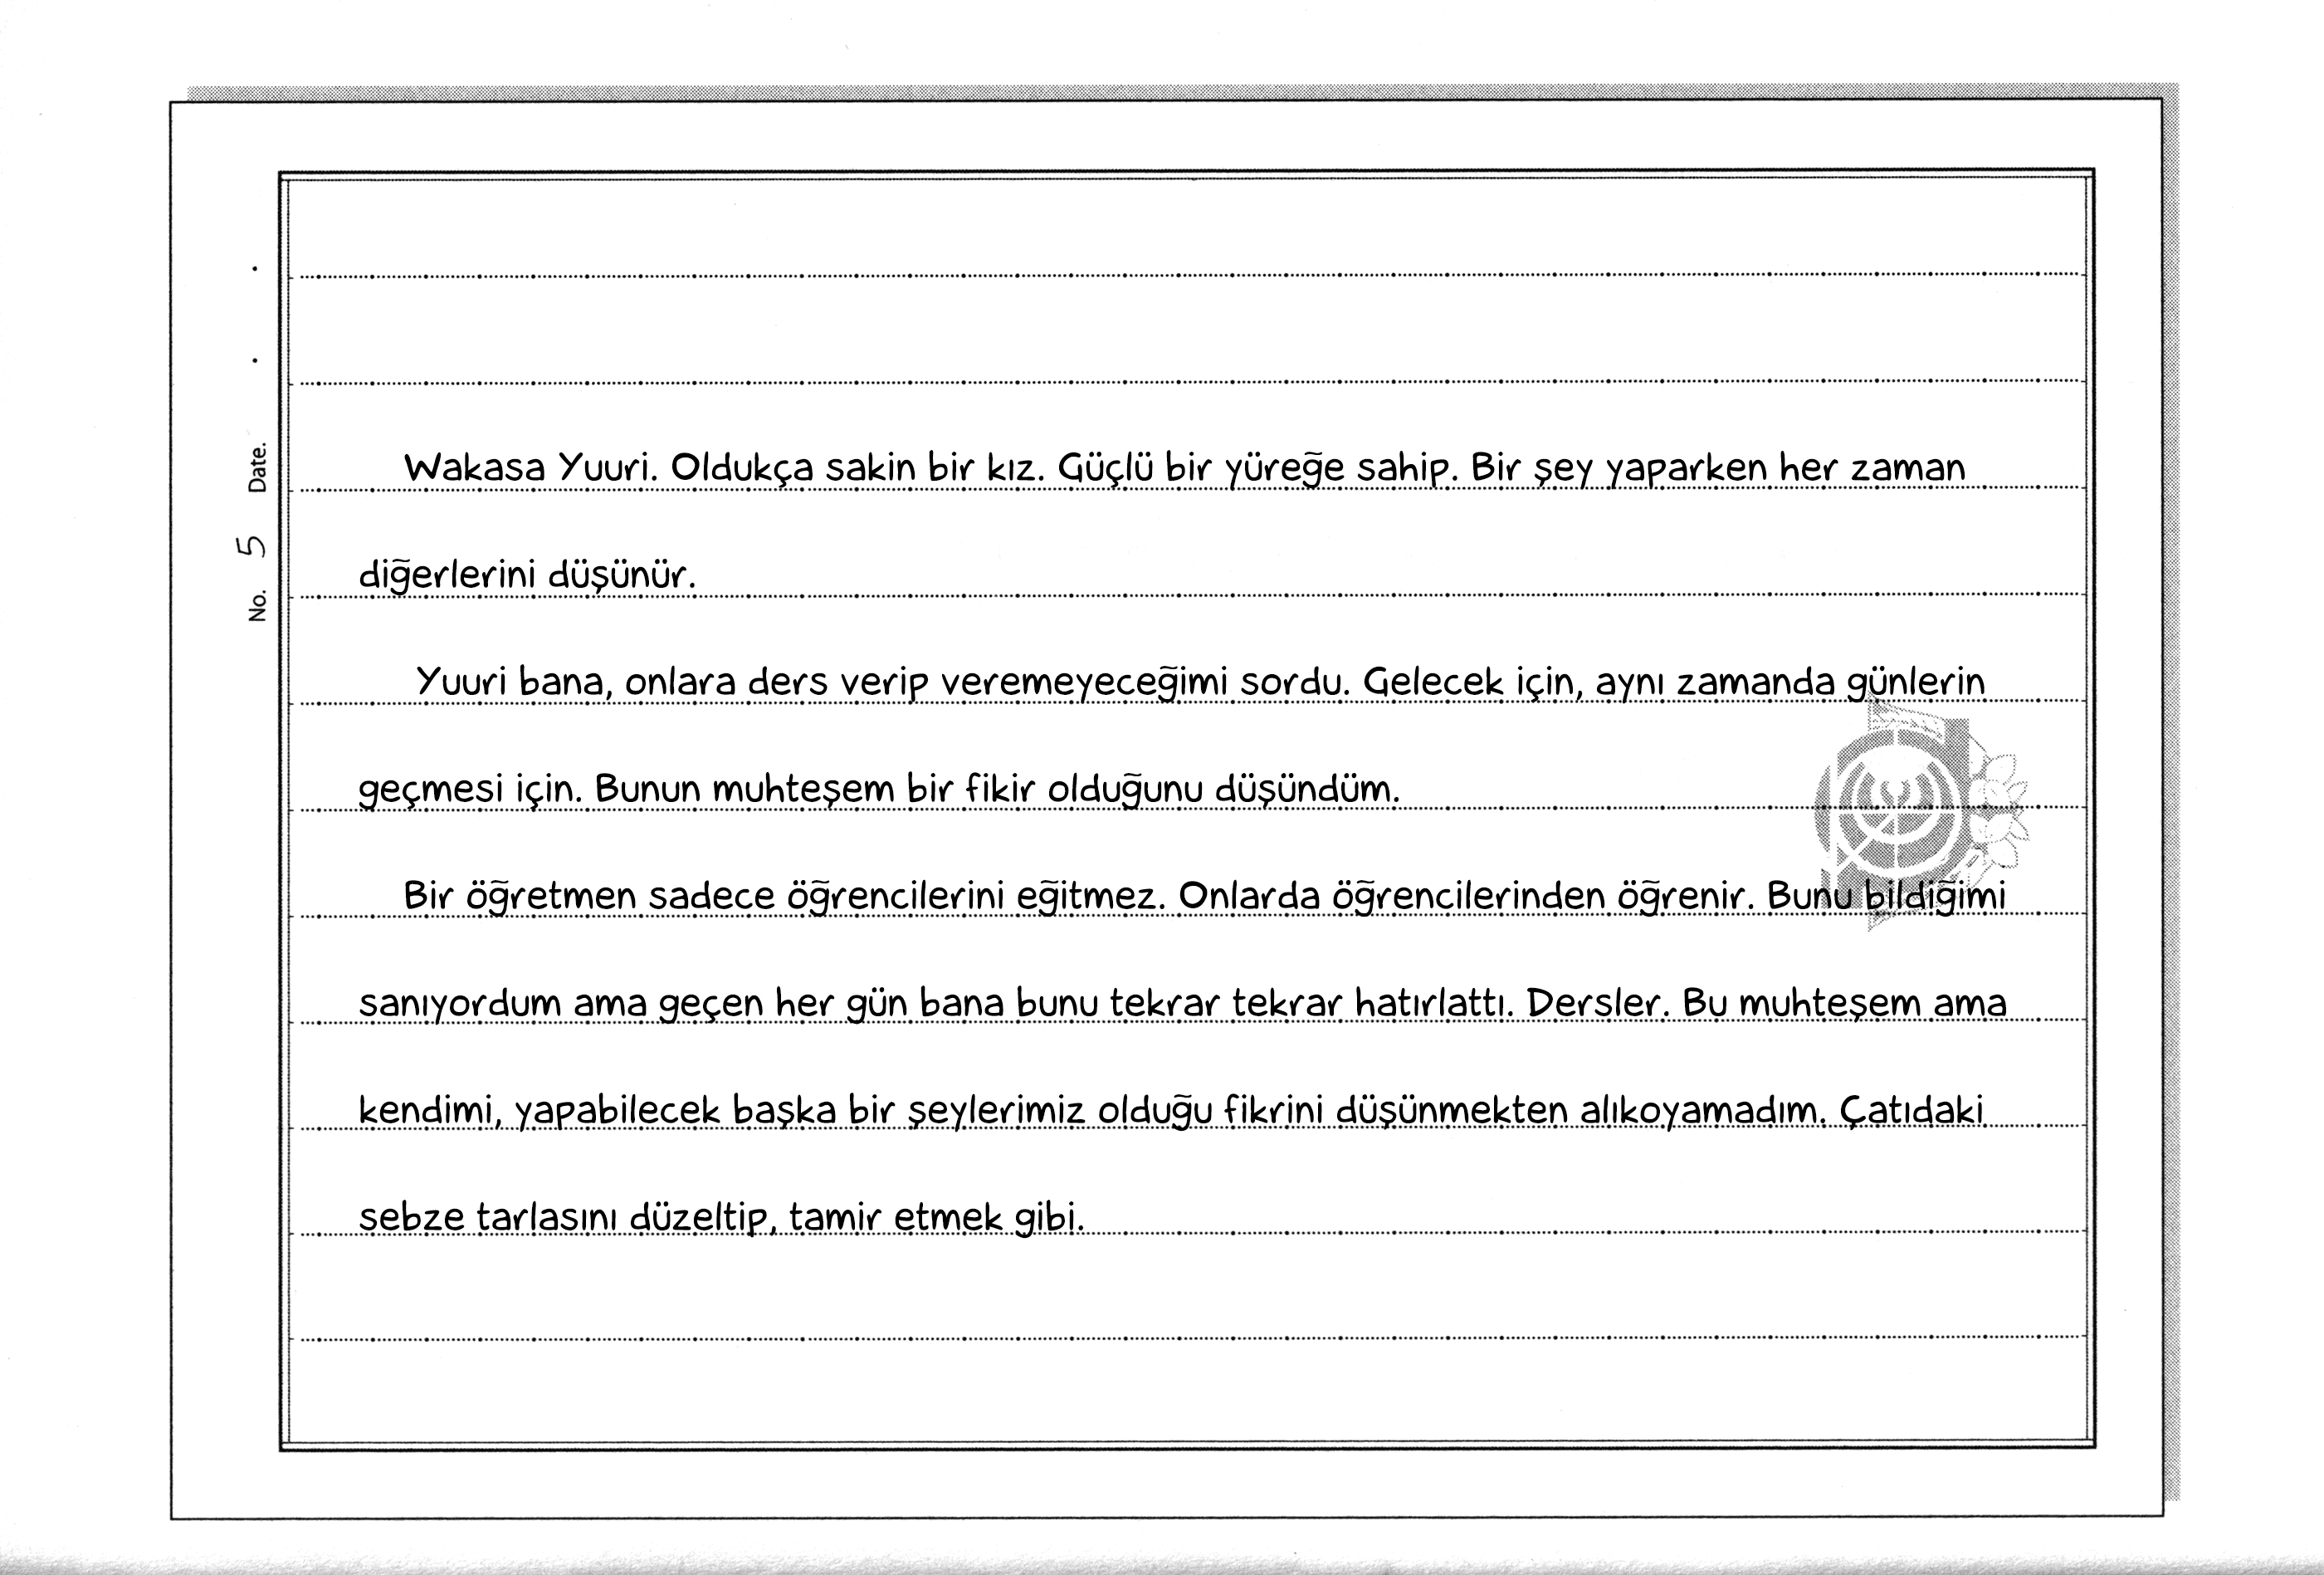 No. 5 Date. . .
Wakasa Yuuri. Oldukça sakin bir kız. Güçlü bir yüreğe sahip. Bir şey yaparken her zaman
diğerlerini düşünür.
Yuuri bana, onlara ders verip veremeyeceğimi sordu. Gelecek için, aynı zamanda günlerin
geçmesi için. Bunun muhteşem bir fikir olduğunu düşündüm.
Bir öğretmen sadece öğrencilerini eğitmez. Onlarda öğrencilerinden öğrenir. Bunu bildiğimi
sanıyordum ama geçen her gün bana bunu tekrar tekrar hatırlattı. Dersler. Bu muhteşem ama
kendimi, yapabilecek başka bir şeylerimiz olduğu fikrini düşünmekten alıkoyamadım. Çatıdaki
sebze tarlasını düzeltip, tamir etmek gibi.